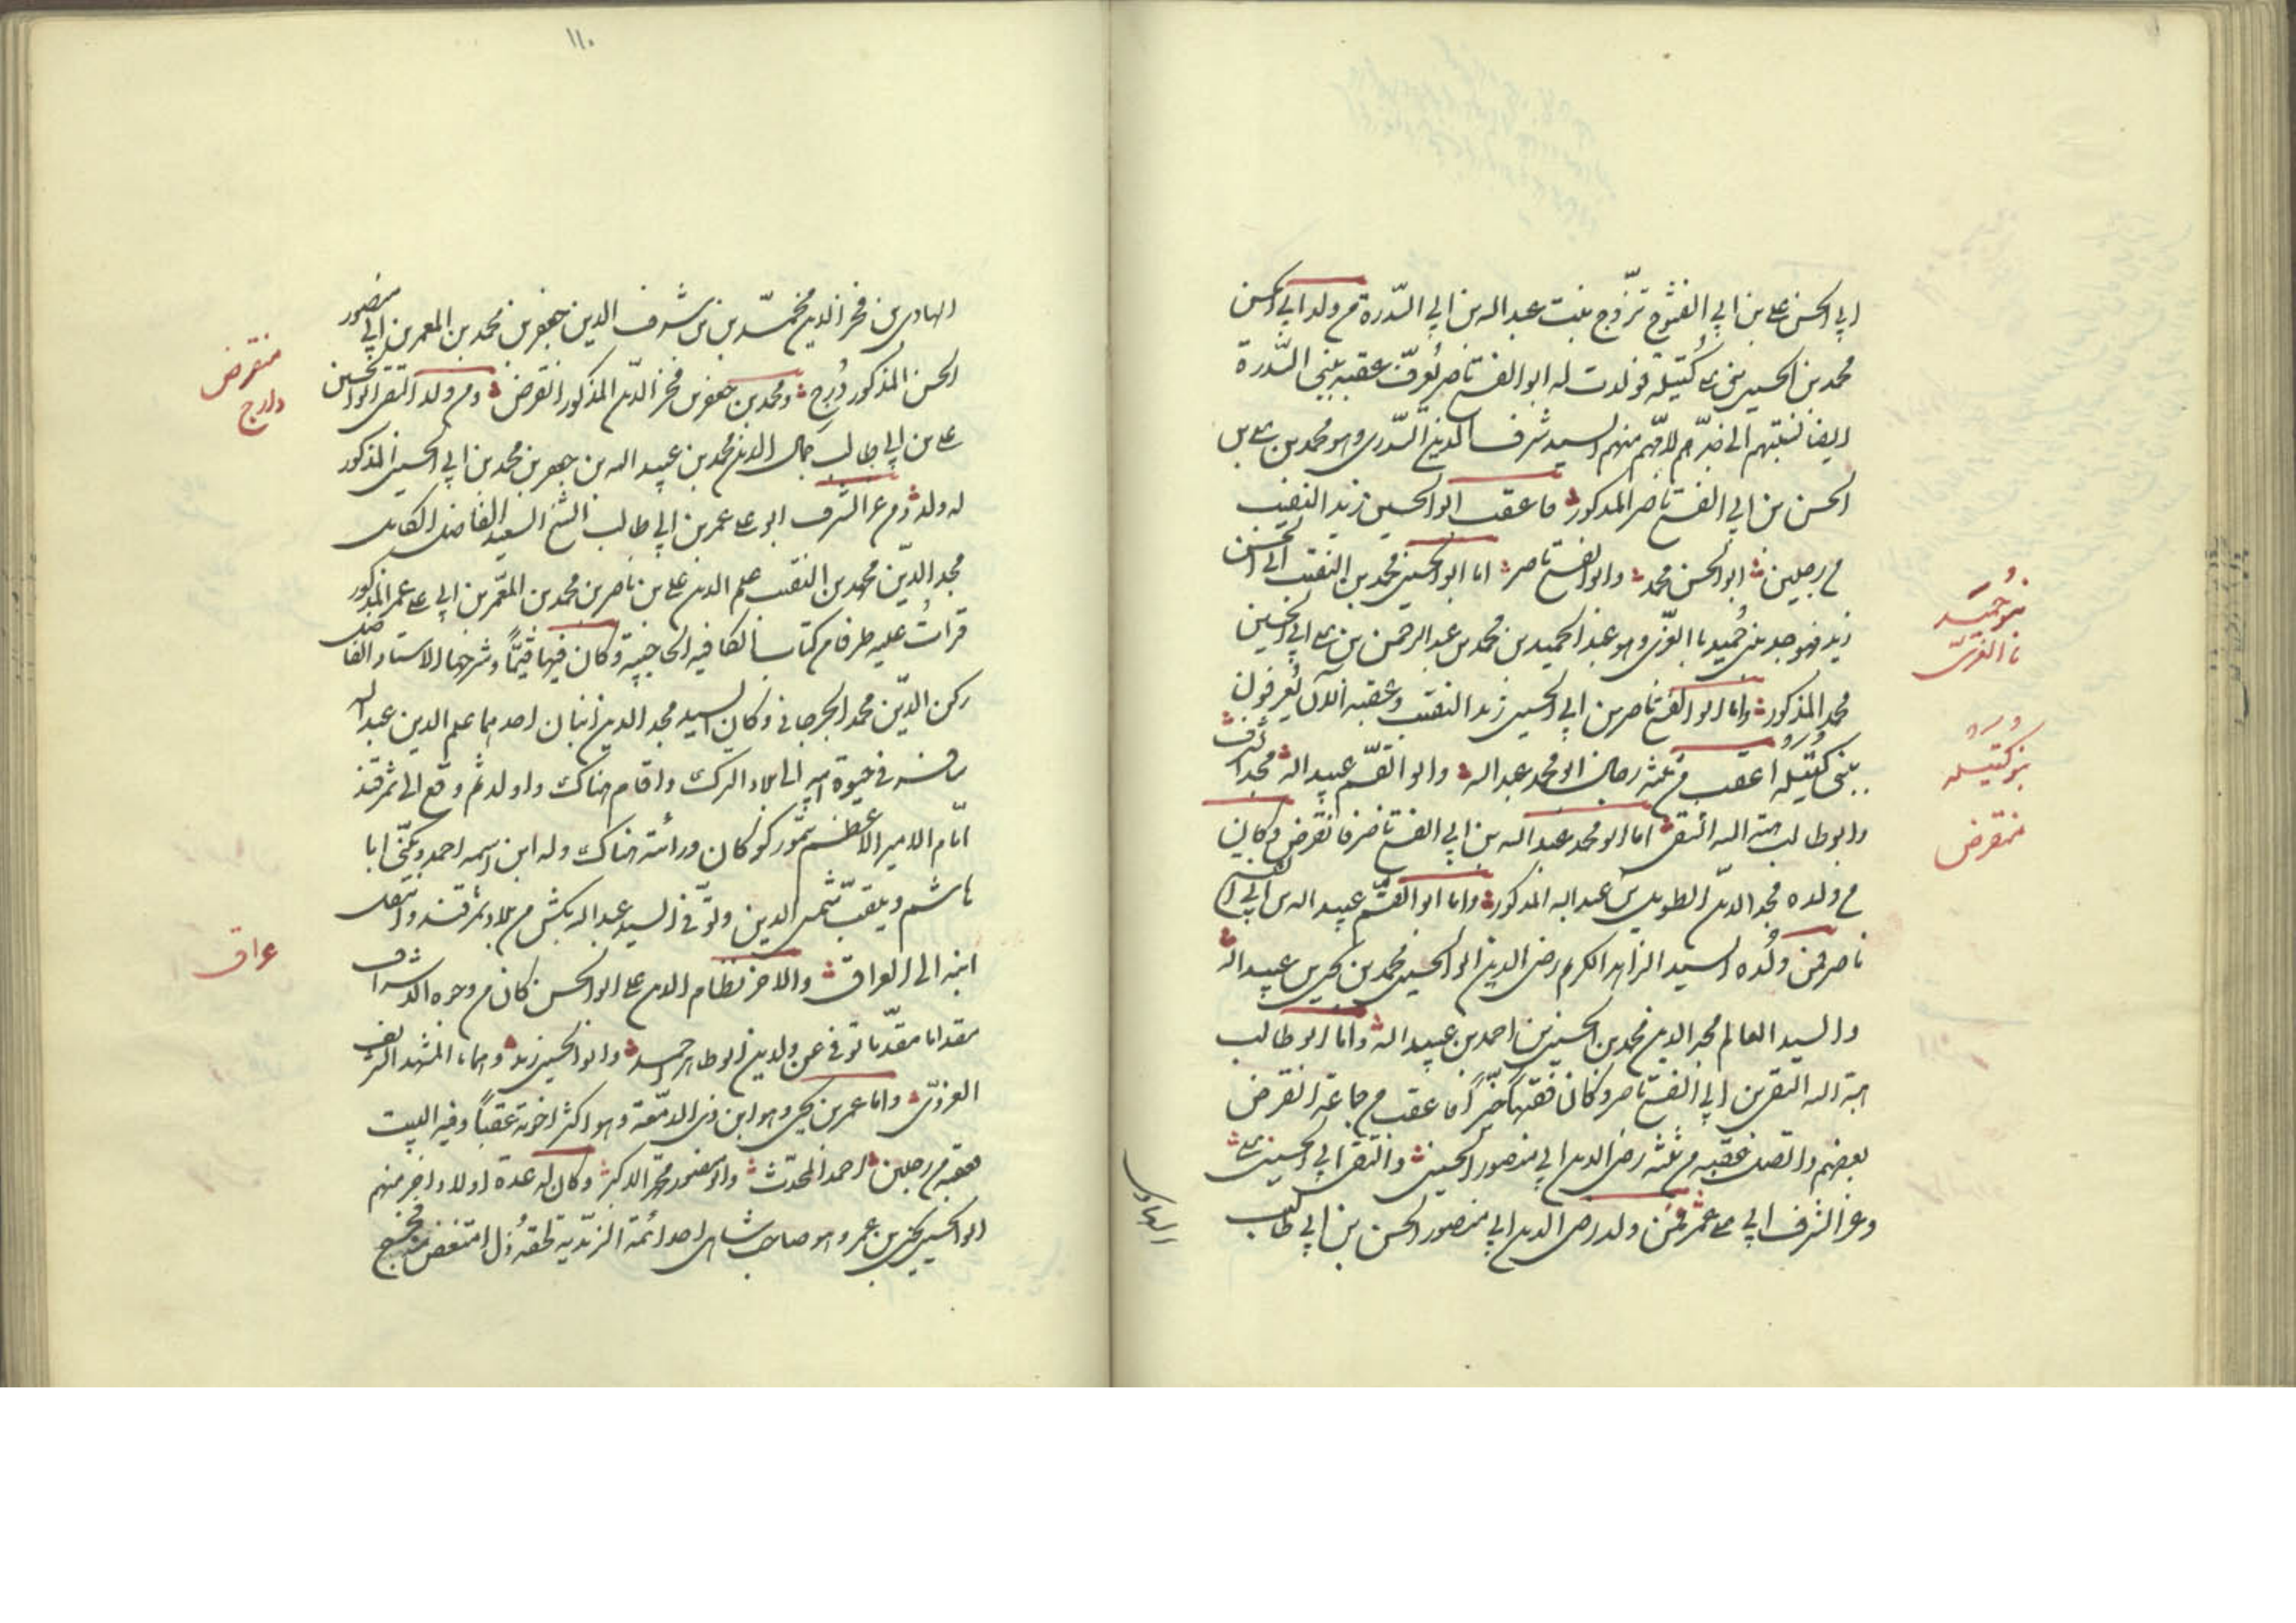 ابي الحسن علي بن ابي الفتوح تزوج بنت عبد الله بن ابي السدرة من ولد ابي الحسن
محمد بن الحسين بن علي كتيله فولدت له ابو الفتح ناصر يعرف عقبه ببني السدرة
ايضا نسبتهم الى جدهم لامهم منهم السيد شرف الدين السدري وهو محمد بن علي بن
الحسن بن ابي الفتح ناصر المذكور فاعقب ابو الحسين زيد النقيب
من رجلين ابو الحسن محمد وابو الفتح ناصر اما ابو الحسين محمد بن النقيب ابي الحسين
زيد فهو جد بني حميد باالغري وهو عبد الحميد بن محمد بن عبد الرحمن بن علي ابي الحسين
محمد المذكور واما ابو الفتح ناصر بن ابي الحسين زيد النقيب وعقبه الآن يعرفون
ببني كتيله اعقب من ثلثه رجال ابو محمد عبد الله وابو القسم عبيد الله مجد الشرف
وابو طالب هبة الله التقي اما ابو محمد عبد الله بن ابي الفتح ناصر فانقرض وكان
من ولده مجد الدين الطويل بن عبد الله المذكور واما ابو القسم عبيد الله بن ابي الفتح
ناصر فمن ولده السيد الزاهد الكريم رضي الدين ابو الحسين محمد بن يحيى بن عبيد الله
والسيد العالم مجد الدين محمد بن الحسين بن احمد بن عبيد الله واما ابو طالب
هبة الله التقي بن ابي الفتح ناصر وكان فقيها خيرا فاعقب من جماعة انقرض
بعضهم واتصل عقبه من ثلثه رضي الدين ابي منصور الحسن والتقي ابي الحسين علي
وعز الشرف ابي علي عمر فمن ولد رضي الدين ابي منصور الحسن بن ابي طالب
الهادي
بنو حميد
باالغري
بنو كتيله
منقرض
١١٠
الهادي بن فخر الدين محمد بن شرف الدين جعفر بن محمد بن المعمر بن ابي منصور
الحسن المذكور درج ومحمد بن جعفر بن فخر الدين المذكور انقرض ومن ولد التقي ابو الحسين
علي بن ابي طالب جمال الدين محمد بن عبيد الله بن جعفر بن محمد بن ابي الحسين المذكور
له ولد ومن عز الشرف ابو علي عمر بن ابي طالب الشيخ السيد الفاضل الكامل
مجد الدين محمد بن النقيب علم الدين علي بن ناصر بن محمد بن المعمر بن ابي علي عمر المذكور
قرات عليه طرفا من كتاب الكافيه الحاجبيه وكان فيها قيما وشرحها الاستاد الفاضل
ركن الدين محمد الجرجاني وكان السيد مجد الدين ابنان احدهما علم الدين عبد الله
سافر في حيوة ابيه الى بلاد الترك واقام هناك واولد ثم وقع الى سمرقند
ايام الامير الاعظم تيمور كوركان ورأيته هناك وله ابن اسمه احمد ويكنى ابا
هاشم ويلقب شمس الدين وتوفي السيد عبد الله بكش من بلاد سمرقند وانتقل
ابنه الى العراق والاخر نظام الدين علي ابو الحسن كان من وجوه الاشراف
مقداما مقدما توفي عن ولدين ابو طاهر احمد وابو الحسين زيد وهما بالمشهد الشريف
الغروي واما عمر بن يحيى وهو ابن ذي الدمعة وهو اكثر اخوته عقبا وفيه البيت
فعقبه من رجلين احمد المحدث وابو منصور محمد الاكبر وكان له عدة اولاد اخر منهم
ابو الحسين يحيى بن عمر وهو صاحب شاهي احد ائمة الزيديه لحقه ذل امتعض منه فخرج
منقرض
دارج
عراق